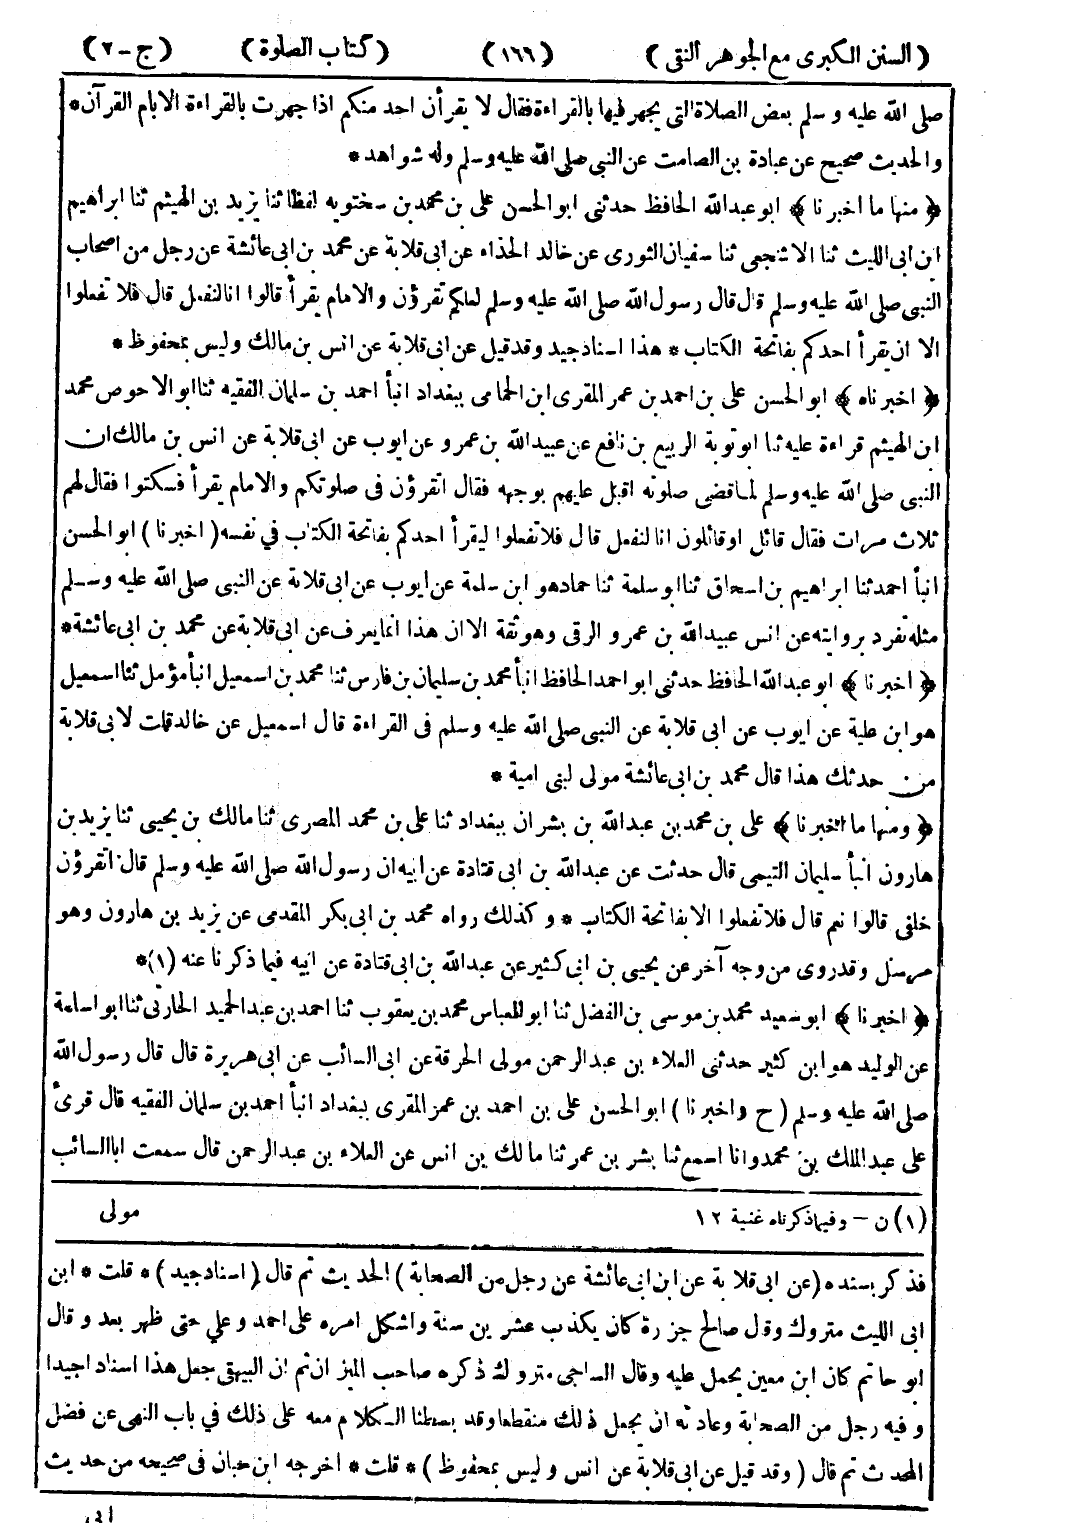 ( السنن الكبرى مع الجوهر النقى ) (١٦٦) ( كتاب الصلوة ) ( ج - ٢ )
صلى الله عليه و سلم بعض الصلاة التى يجهر فيها بالقراءة فقال لا يقرأن احد منكم اذا جهرت بالقراءة الا بام القرآن *
والحديث صحيح عن عبادة بن الصامت عن النبى صلى الله عليه وسلم وله شواهد *
﴿ منها ما اخبرنا ﴾ ابو عبد الله الحافظ حدثنى ابو الحسن على بن محمد بن سختويه لفظا ثنا يزيد بن الهيثم ثنا ابراهيم
ابن ابى الليث ثنا الاشجعى ثنا سفيان الثورى عن خالد الحذاء عن ابى قلابة عن محمد بن ابى عائشة عن رجل من اصحاب
النبى صلى الله عليه وسلم قال قال رسول الله صلى الله عليه وسلم لعلكم تقرؤن والامام يقرأ قالوا انا لنفعل قال فلا تفعلوا
الا ان يقرأ احدكم بفاتحة الكتاب * هذا اسناد جيد وقد قيل عن ابى قلابة عن انس بن مالك وليس بمحفوظ *
﴿ اخبرناه ﴾ ابو الحسن على بن احمد بن عمر المقرى ابن الحمامى ببغداد انبأ احمد بن سلمان الفقيه ثنا ابو الاحوص محمد
ابن الهيثم قراءة عليه ثنا ابو توبة الربيع بن نافع عن عبيد الله بن عمرو عن ايوب عن ابى قلابة عن انس بن مالك ان
النبى صلى الله عليه وسلم لما قضى صلوته اقبل عليهم بوجهه فقال اتقرؤن فى صلوتكم والامام يقرأ فسكتوا فقال لهم
ثلاث مرات فقال قائل او قائلون انا لنفعل قال فلا تفعلوا ليقرأ احدكم بفاتحة الكتاب في نفسه ( اخبرنا ) ابو الحسن
انبأ احمد ثنا ابراهيم بن اسحاق ثنا ابو سلمة ثنا حماد هو ابن سلمة عن ايوب عن ابى قلابة عن النبى صلى الله عليه وسلم
مثله تفرد بروايته عن انس عبيد الله بن عمرو الرقى وهو ثقة الا ان هذا انما يعرف عن ابى قلابة عن محمد بن ابى عائشة *
﴿ اخبرنا ﴾ ابو عبد الله الحافظ حدثنى ابو احمد الحافظ انبأ محمد بن سليمان بن فارس ثنا محمد بن اسمعيل انبأ مؤمل ثنا اسمعيل
هو ابن علية عن ايوب عن ابى قلابة عن النبى صلى الله عليه وسلم فى القراءة قال اسمعيل عن خالد قلت لابى قلابة
من حدثك هذا قال محمد بن ابى عائشة مولى لبنى امية *
﴿ ومنها ما اخبرنا ﴾ على بن محمد بن عبد الله بن بشران ببغداد ثنا على بن محمد المصرى ثنا مالك بن يحيى ثنا يزيد بن
هارون انبأ سليمان التيمى قال حدثت عن عبد الله بن ابى قتادة عن ابيه ان رسول الله صلى الله عليه وسلم قال اتقرؤن
خلفى قالوا نعم قال فلا تفعلوا الا بفاتحة الكتاب * وكذلك رواه محمد بن ابى بكر المقدمى عن يزيد بن هارون وهو
مرسل وقد روى من وجه آخر عن يحيى بن ابى كثير عن عبد الله بن ابى قتادة عن ابيه فيما ذكرنا عنه (١) *
﴿ اخبرنا ﴾ ابو سعيد محمد بن موسى بن الفضل ثنا ابو العباس محمد بن يعقوب ثنا احمد بن عبد الحميد الحارثى ثنا ابو اسامة
عن الوليد هو ابن كثير حدثنى العلاء بن عبد الرحمن مولى الحرقة عن ابى السائب عن ابى هريرة قال قال رسول الله
صلى الله عليه وسلم ( ح واخبرنا ) ابو الحسن على بن احمد بن عمر المقرى ببغداد انبأ احمد بن سلمان الفقيه قال قرئ
على عبد الملك بن محمد وانا اسمع ثنا بشر بن عمر ثنا مالك بن انس عن العلاء بن عبد الرحمن قال سمعت ابا السائب
(١) ن - وفيما ذكرناه غنية ١٢ مولى
فذكر بسنده ( عن ابى قلابة عن ابن ابى عائشة عن رجل من الصحابة ) الحديث ثم قال ( اسناد جيد ) * قلت * ابن
ابى الليث متروك وقال صالح جزرة كان يكذب عشرين سنة واشكل امره على احمد وعلي حتى ظهر بعد وقال
ابو حاتم كان ابن معين يحمل عليه وقال الساجى متروك ذكره صاحب الميزان ثم ان البيهقى جعل هذا اسنادا جيدا
وفيه رجل من الصحابة وعادته ان يجعل ذلك منقطعا وقد بسطنا الكلام معه على ذلك في باب النهى عن فضل
المحدث ثم قال ( وقد قيل عن ابى قلابة عن انس وليس بمحفوظ ) * قلت * اخرجه ابن حبان فى صحيحه من حديث
ابى